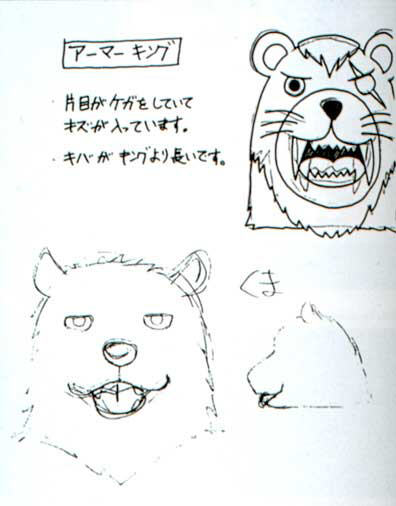 アーマーキング
・片目がケガをしていて
キズが入っています。
・キバがキングより長いです。
くま